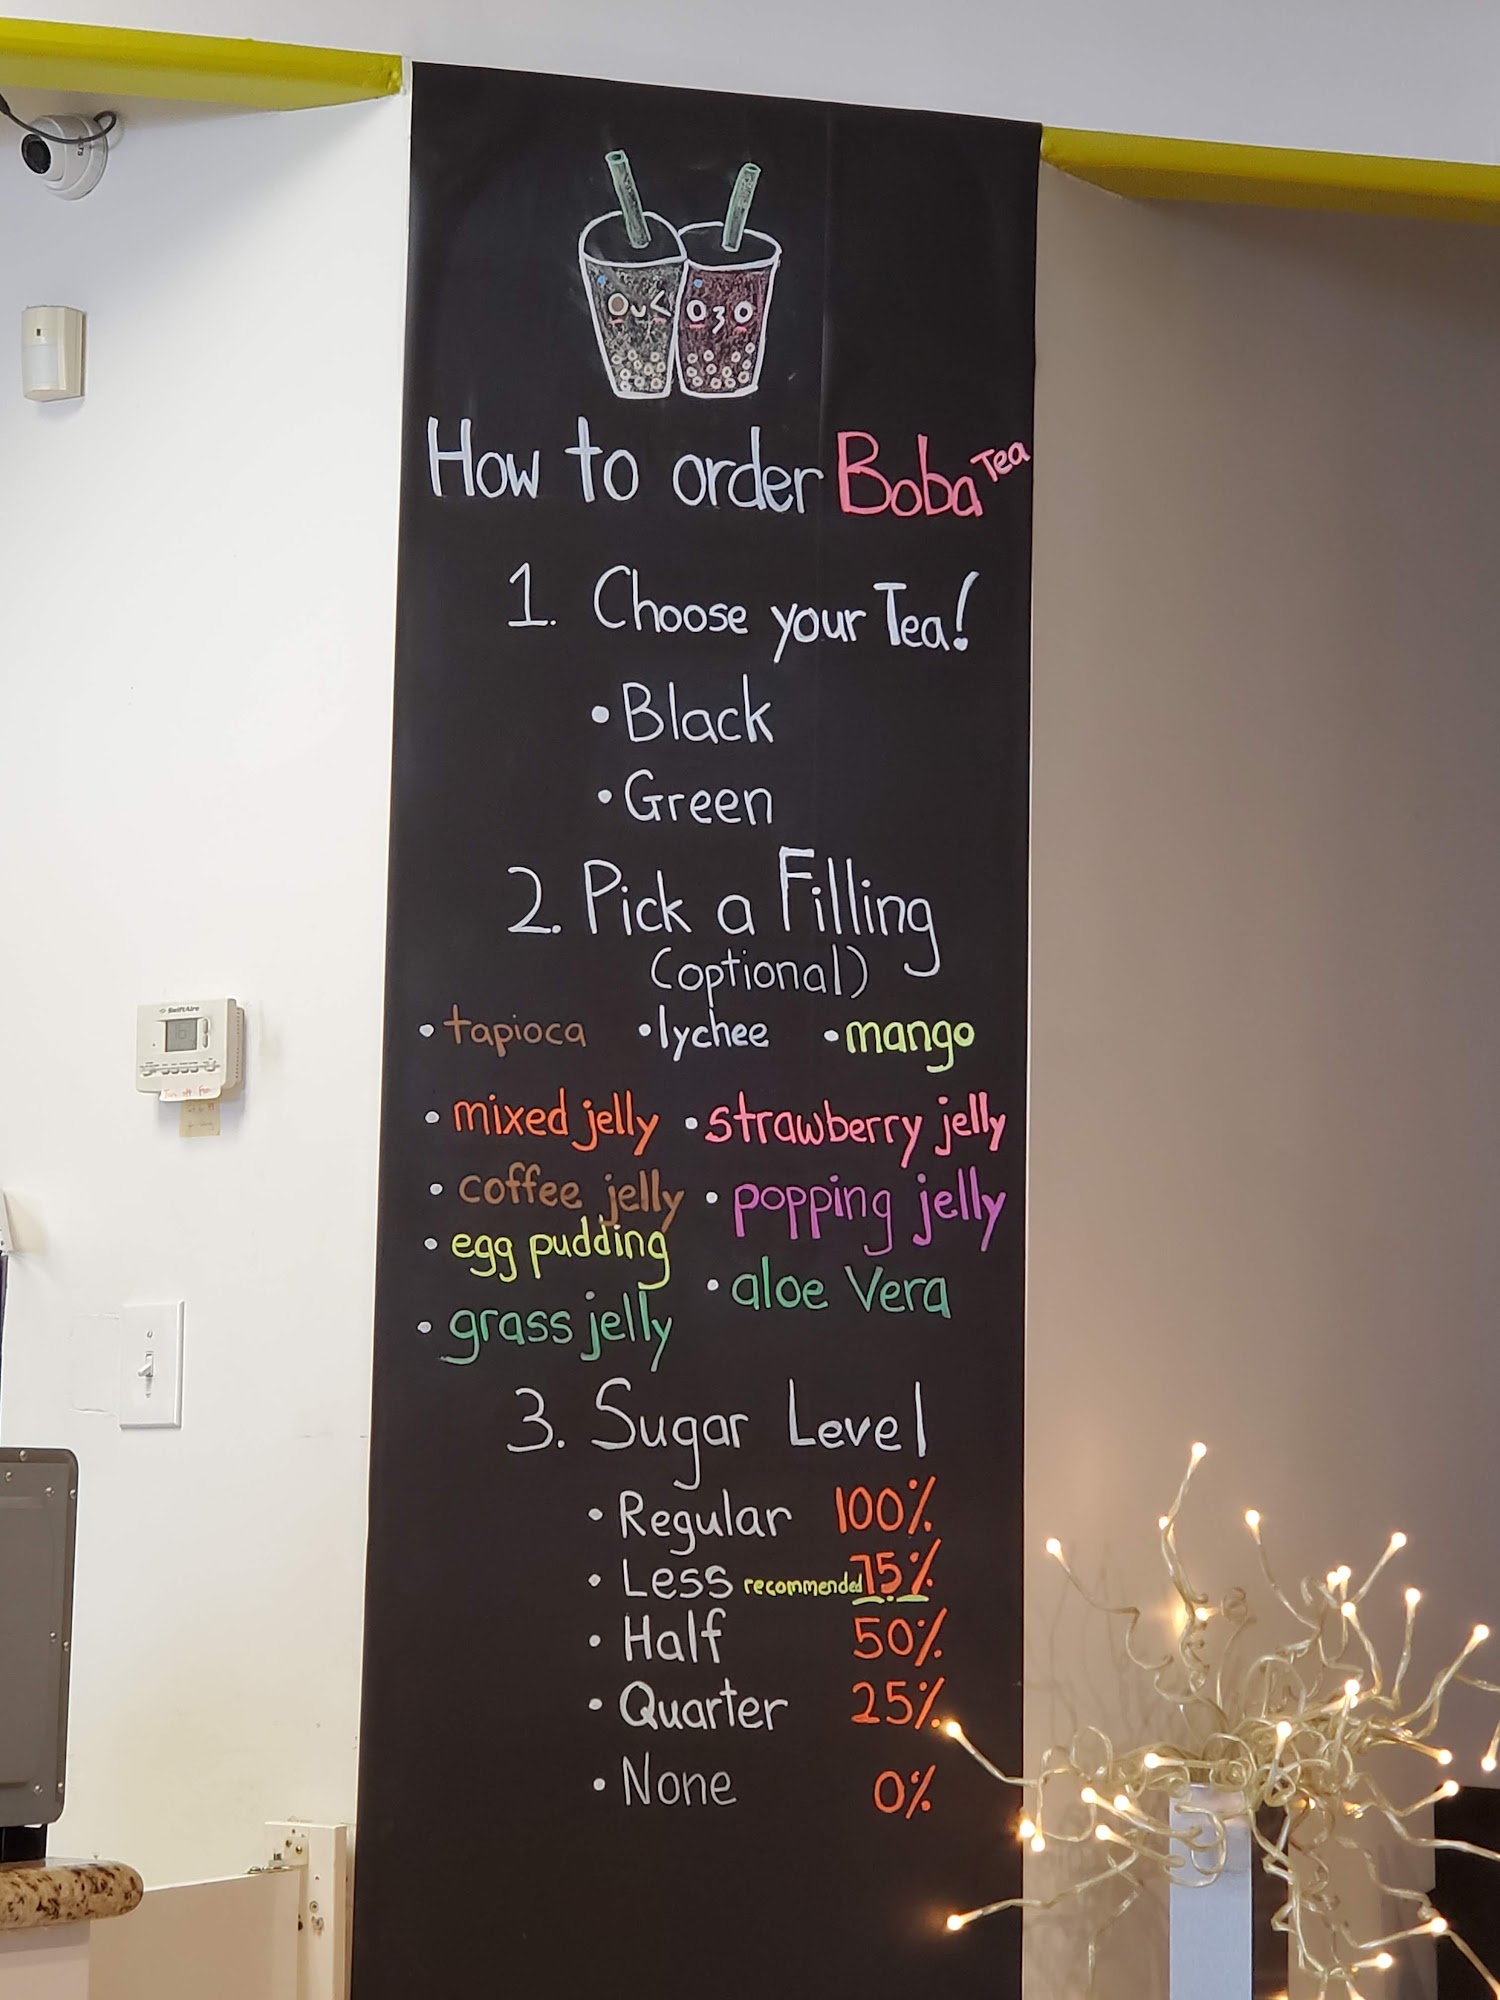 How to order Boba Tea
1. Choose your Tea!
• Black
• Green
2. Pick a Filling
(optional)
• tapioca • lychee • mango
• mixed jelly • strawberry jelly
• coffee jelly • popping jelly
• egg pudding
• aloe Vera
• grass jelly
3. Sugar Level
• Regular 100%
• Less recommended 75%
• Half 50%
• Quarter 25%
• None 0%
SwiftAire